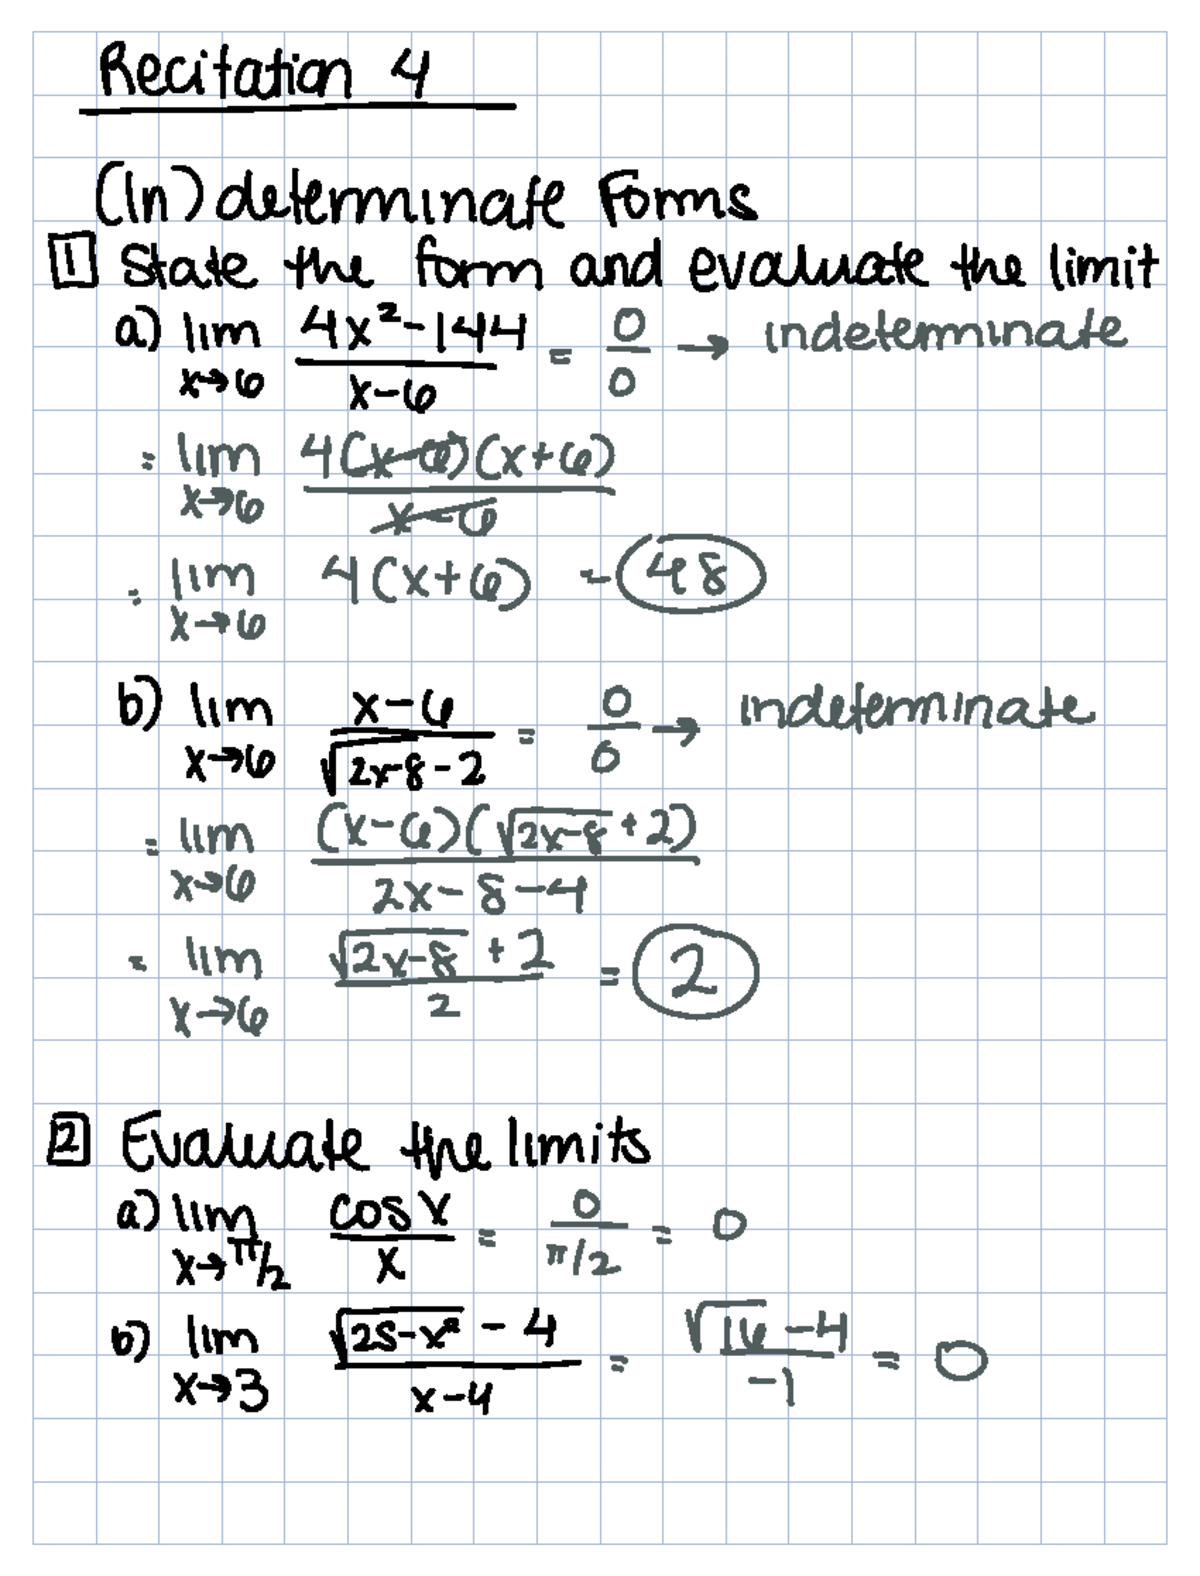 Recitation 4
(In)determinate Forms
1 State the form and evaluate the limit
a) lim x→6 (4x²-144)/(x-6) = 0/0 → indeterminate
= lim x→6 4(x-6)(x+6)/(x-6)
= lim x→6 4(x+6) = 48
b) lim x→6 (x-6)/(√2x-8 - 2) = 0/0 → indeterminate
= lim x→6 (x-6)(√2x-8 + 2)/(2x-8-4)
= lim x→6 (√2x-8 + 2)/2 = 2
2 Evaluate the limits
a) lim x→π/2 cos x/x = 0/(π/2) = 0
b) lim x→3 (√25-x² - 4)/(x-4) = (√16 - 4)/-1 = 0